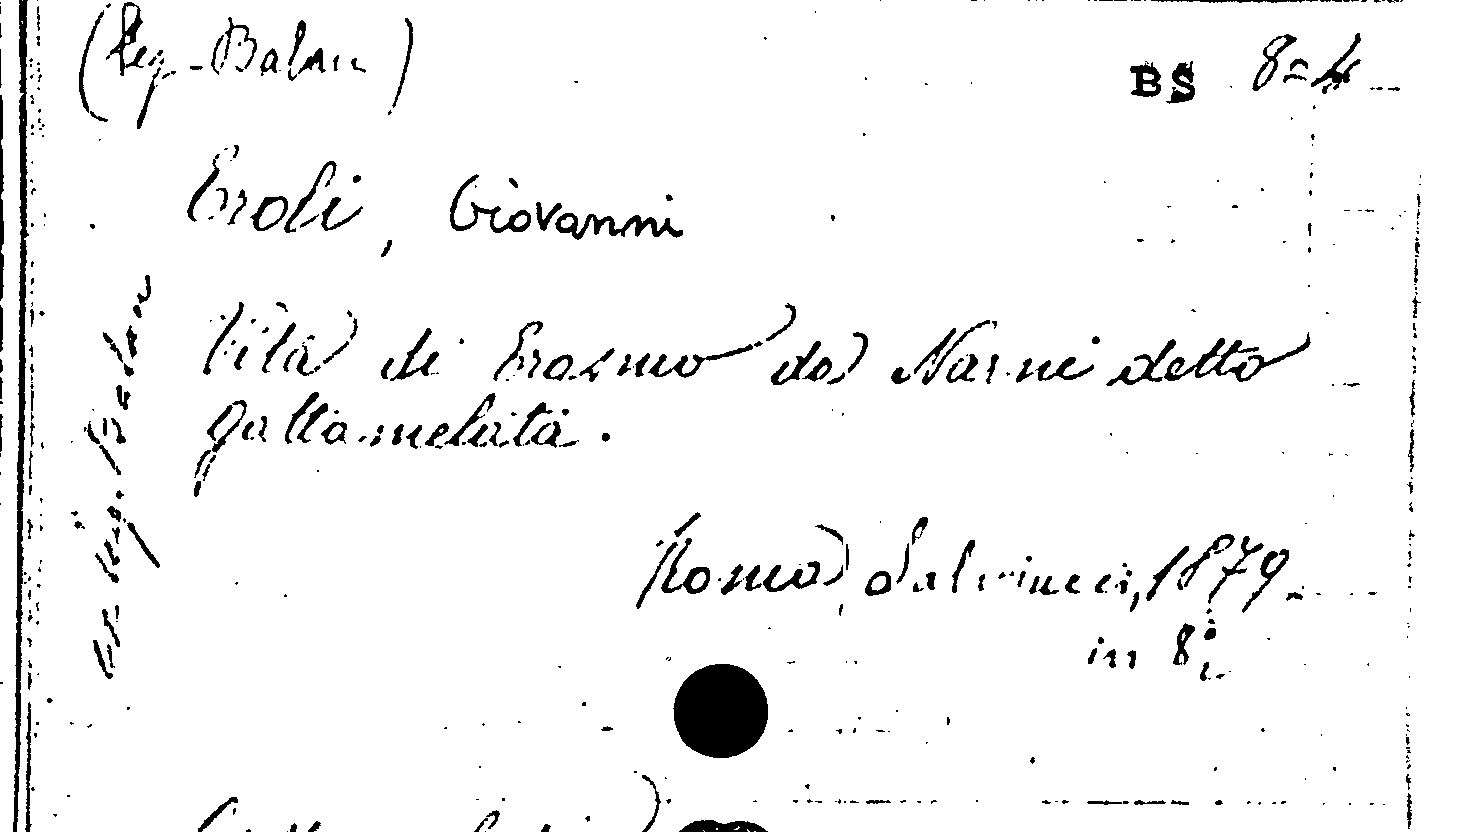 (Leg. Balan)
BS 8=4
Eroli, Giovanni
Vita di Erasmo da Narni detto
gattamelata.
Roma, Salviucci, 1879
in 8°
Leg. Balan